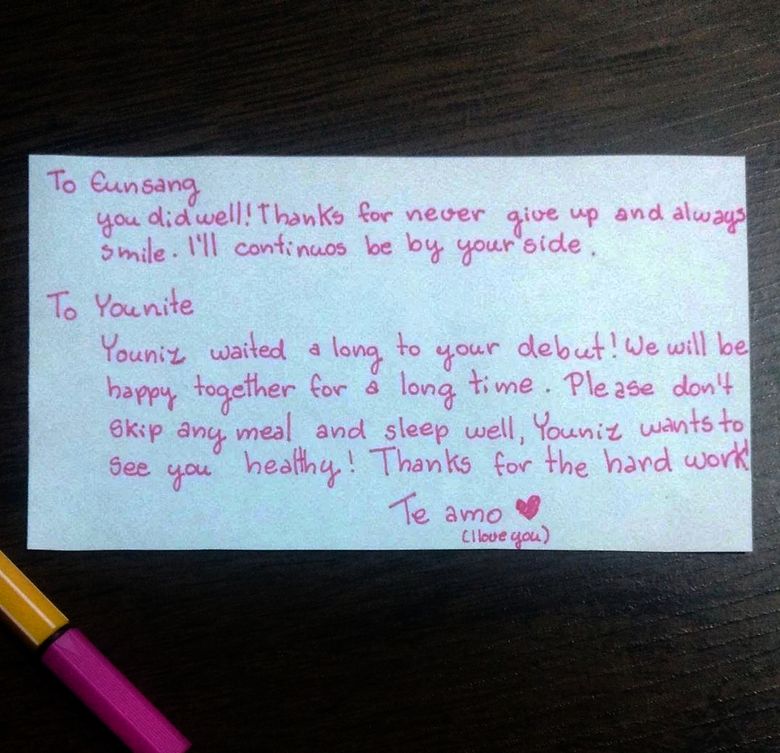 To Eunsang
you did well! Thanks for never give up and always
smile. I'll continuos be by your side.
To Younite
Youniz waited a long to your debut! We will be
happy together for a long time. Please don't
skip any meal and sleep well, Youniz wants to
see you healthy! Thanks for the hard work
Te amo ♥
(I love you)